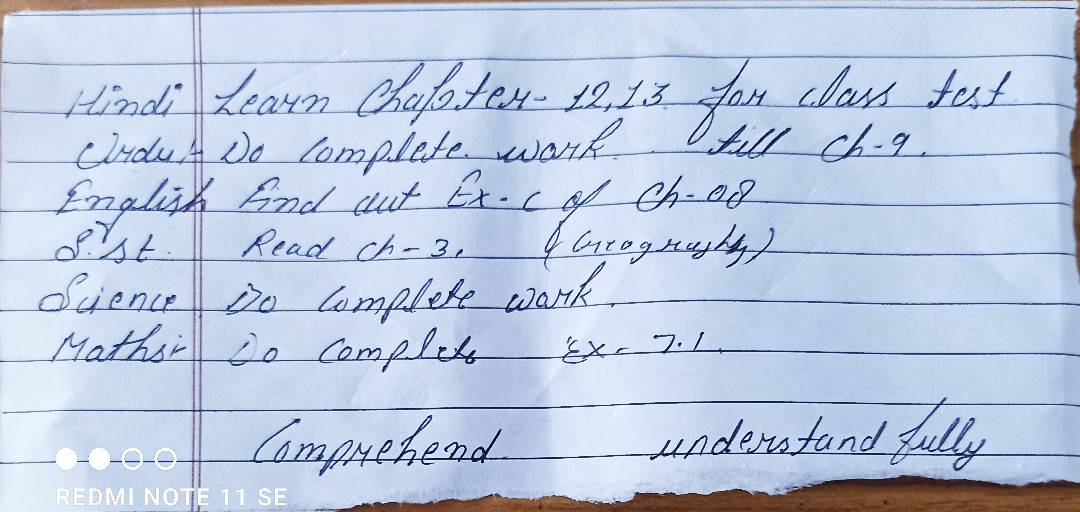 Hindi Learn Chapter- 12,13 for class test
Urdu:- Do Complete work. till ch-9.
English Find out Ex-c of Ch-08
S.st. Read ch-3. (Geography)
Science Do Complete work.
Maths:- Do Complete Ex-7.1.
Comprehend understand fully
REDMI NOTE 11 SE